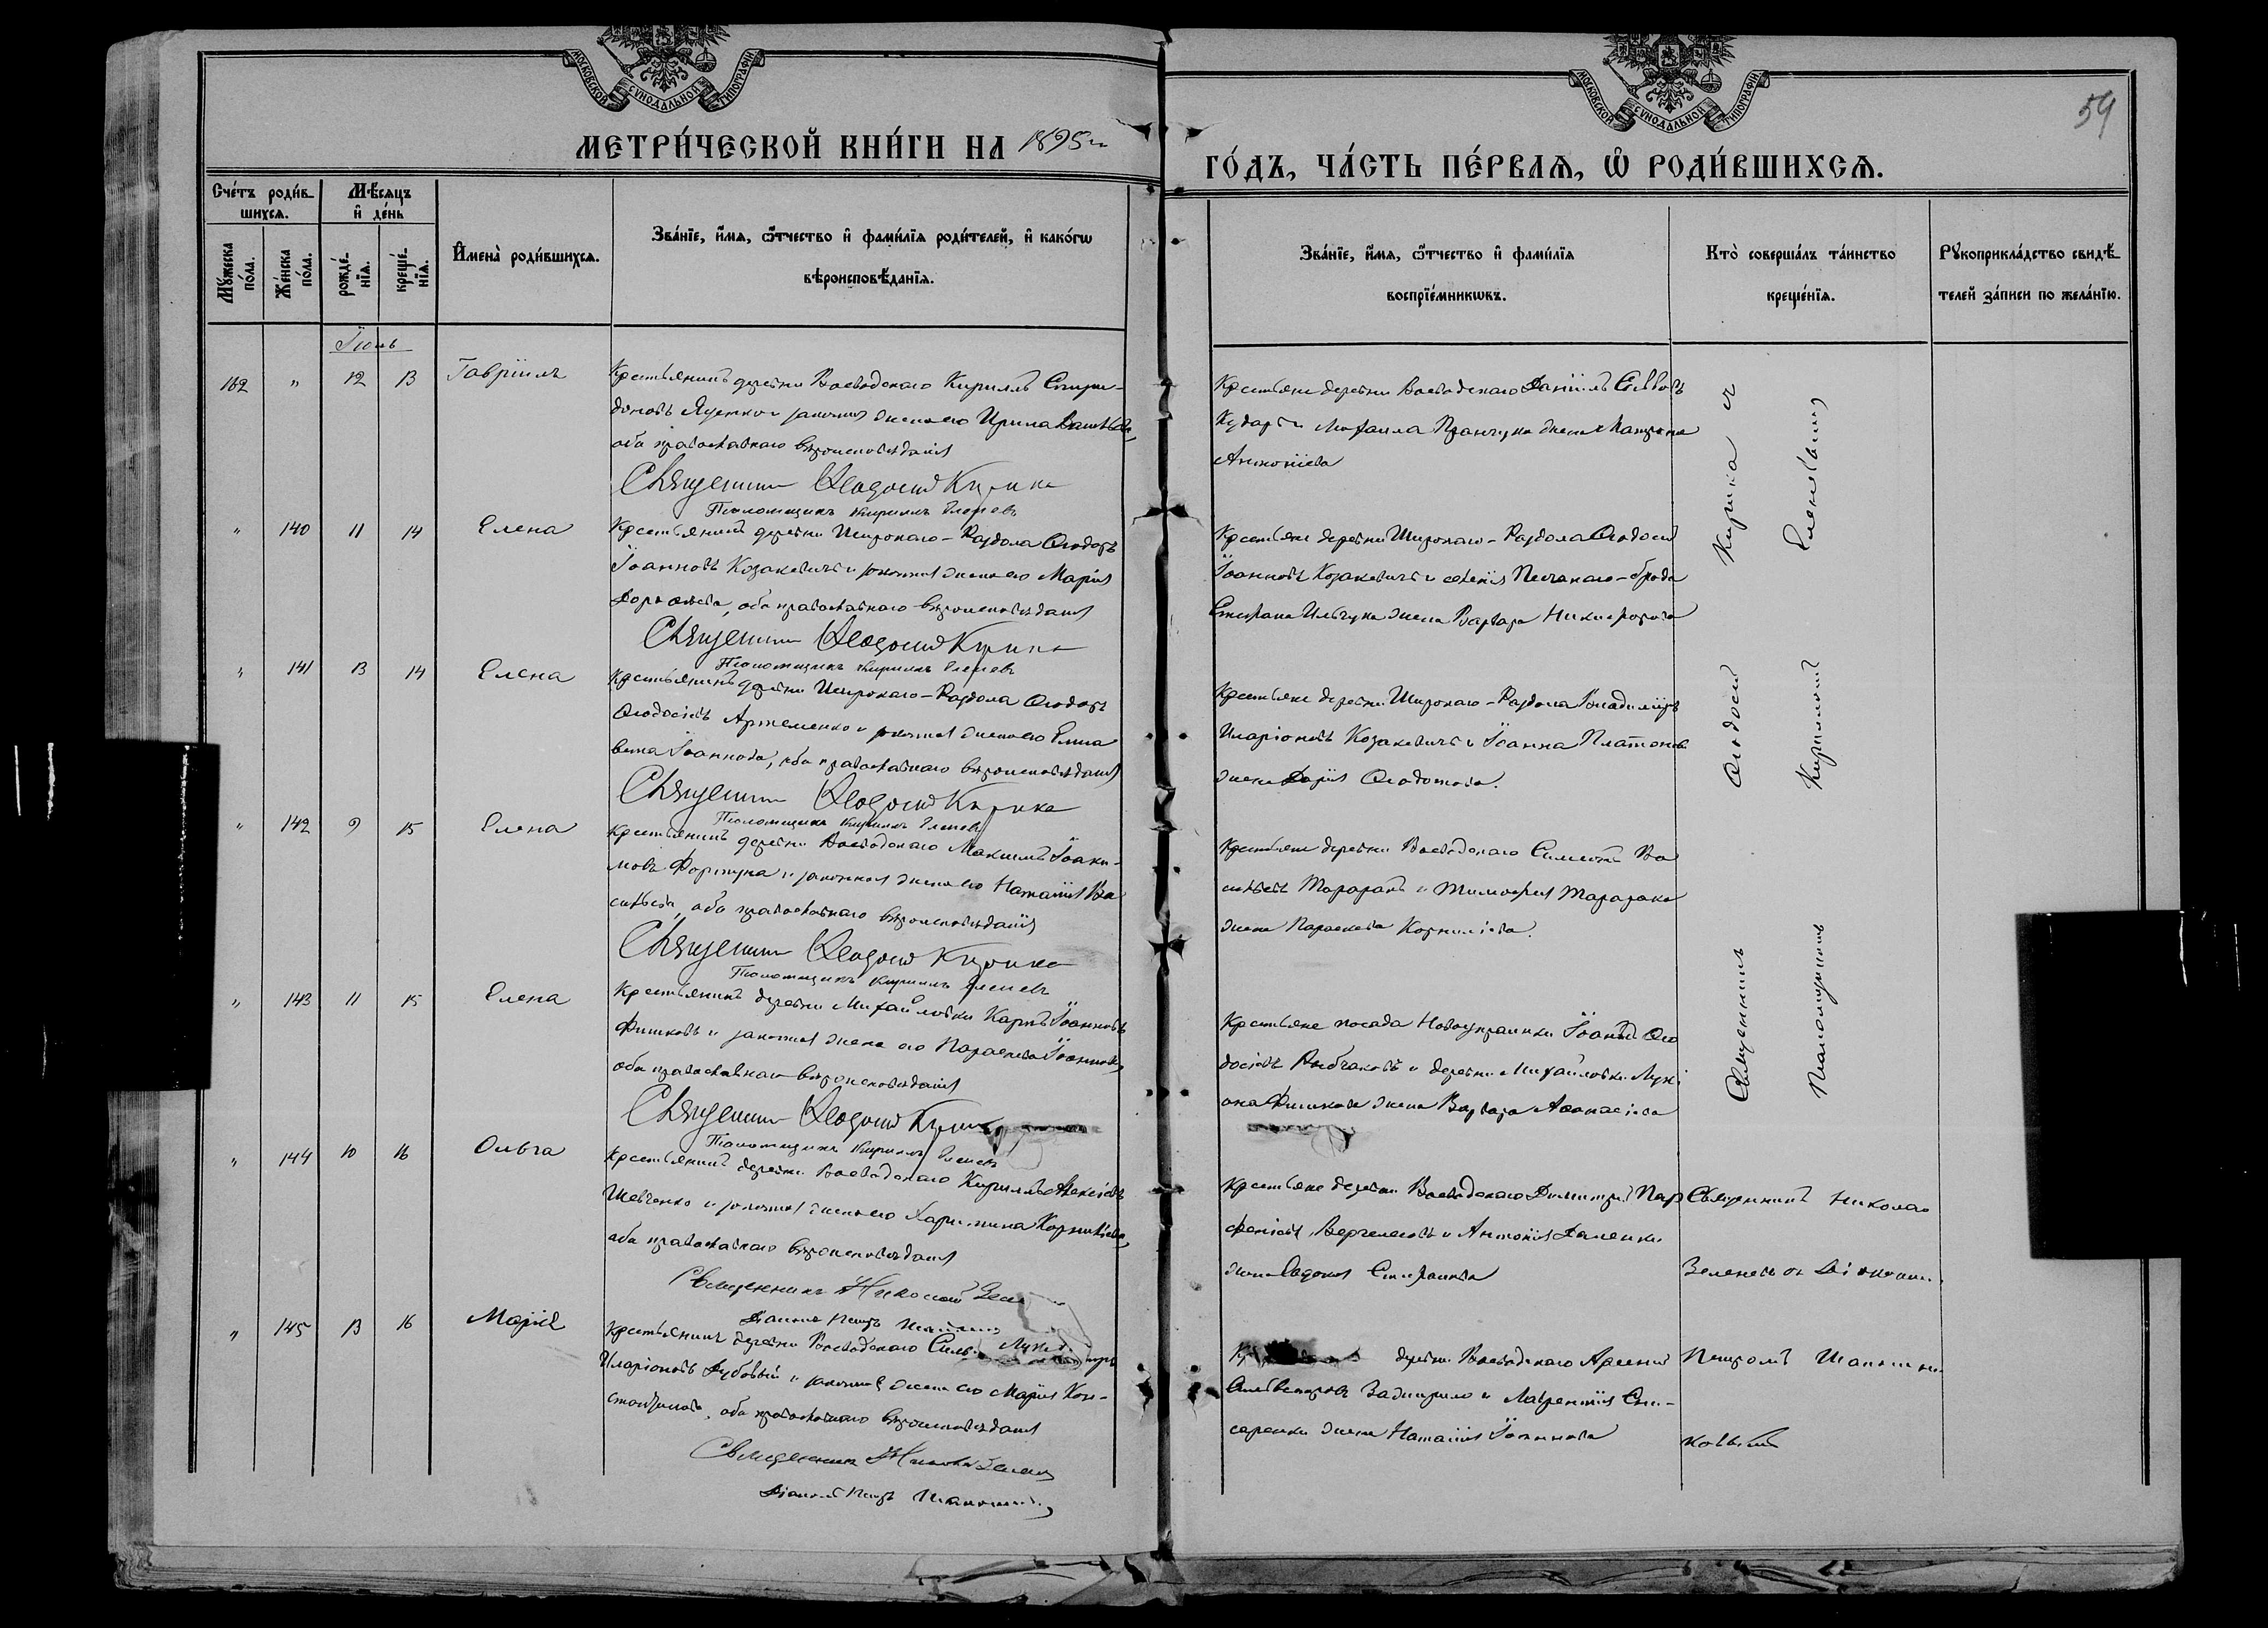 МОСКОВСКОЙ СѴНОДАЛЬНОЙ ТИПОГРАФІИ
МЕТРИ́ЧЕСКОЙ КНИ́ГИ НА 1895 г.
Сче́тъ роди́в-
шихся.
Мѣ́сяцъ
и҆ де́нь
Мꙋ́жеска
по́ла.
Же́нска
по́ла.
рожде́-
нїя.
креще́-
нїя.
И҆мена̀ роди́вшихся.
Зва́нїе, и҆́мя, ѻ҆́тчество и҆ фами́лїя роди́телей, и҆ како́гѡ
вѣроисповѣ́данїя.
Іюнь
162 " 12 13 Гавріилъ
Крестьянинъ деревни Воеводскаго Кириллъ Спири-
доновъ Яценко и законная жена его Ирина
оба православнаго вѣроисповѣданія
Священникъ Ѳеодосій Кирика
Псаломщикъ Кириллъ
" 140 11 14 Елена
Крестьянинъ деревни Широкаго-Раздола Ѳеодоръ
Іоанновъ Козакевичъ и законная жена его Марія
оба православнаго вѣроисповѣданія
Священникъ Ѳеодосій Кирика
Псаломщикъ Кириллъ
" 141 13 14 Елена
Крестьянинъ деревни Широкаго-Раздола Ѳеодоръ
Ѳеодосіевъ Артеменко и законная жена его Елиса
вета Іоаннова, оба православнаго вѣроисповѣданія
Священникъ Ѳеодосій Кирика
Псаломщикъ Кириллъ
" 142 9 15 Елена
Крестьянинъ деревни Воеводскаго Максимъ Іоаки-
мовъ Фортуна и законная жена его Наталія Ва
сильева, оба православнаго вѣроисповѣданія
Священникъ Ѳеодосій Кирика
Псаломщикъ Кириллъ
" 143 11 15 Елена
Крестьянинъ деревни Михайловки Карпъ Іоанновъ
Фишковъ и законная жена его Параскева Іоаннова,
оба православнаго вѣроисповѣданія
Священникъ Ѳеодосій Кирика
Псаломщикъ Кириллъ
" 144 10 16 Ольга
Крестьянинъ деревни Воеводскаго Кириллъ Алексіевъ
Шевченко и законная жена его Харитина Корниліева,
оба православнаго вѣроисповѣданія
Священникъ Николай
Діаконъ Петръ
" 145 13 16 Марія
Крестьянинъ деревни Воеводскаго
Иларіоновъ Дубовый и законная жена его Марія Кон-
стантинова, оба православнаго вѣроисповѣданія
Священникъ Николай
Діаконъ Петръ
МОСКОВСКОЙ СѴНОДАЛЬНОЙ ТИПОГРАФІИ
59
ГО́ДЪ, ЧА́СТЬ ПЕ́РВАѦ, Ѡ҆ РОДИ́ВШИХСѦ.
Зва́нїе, и҆́мя, ѻ҆́тчество и҆ фами́лїя
воспрїе́мникѡвъ.
Кто̀ соверша́лъ та́инство
креще́нїя.
Рꙋкоприкла́дство свидѣ́-
телей за́писи по жела́нїю.
Крестьяне деревни Воеводскаго Даніилъ Савовъ
Кударь и Михаила жена Матрона
Антоніева
Крестьяне деревни Широкаго-Раздола Ѳеодосій
Іоанновъ Козакевичъ и селенія Песчанаго-брода
Стефана Ильчука жена Варвара Никифорова
Крестьяне деревни Широкаго-Раздола Владиміръ
Иларіоновъ Козакевичъ и Іоанна Платонова
жена Дарія Ѳеодотова.
Крестьяне деревни Воеводскаго Симеонъ Ва
сильевъ Тараранъ и Тимофея Тарарака
жена Параскева Корниліева.
Крестьяне посада Новоукраинки Іоаннъ Ѳео
досіевъ Рыбчаковъ и деревни Михайловки
Фишкова жена Варвара Аѳанасіева
Крестьяне деревни Воеводскаго Димитрій Пар
феніевъ и Антонія
жена Евдокія Стефанова
деревни Воеводскаго Арсеній
Сильвестровъ Задпирило и Лаврентія Сли-
саренки жена Наталія Іоаннова
Священникъ Ѳеодосій Кирика и
Псаломщикъ Кириллъ
Священникъ Николай
Діаконъ
Петромъ